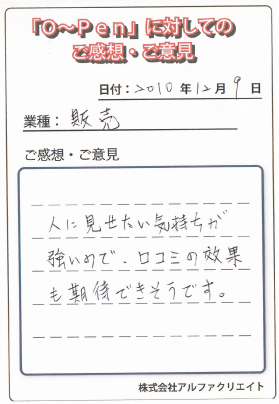 「O～Pen」に対しての
ご感想・ご意見
日付：2010年12月9日
業種：販売
ご感想・ご意見
人に見せたい気持ちが
強いので、口コミの効果
も期待できそうです。
株式会社アルファクリエイト